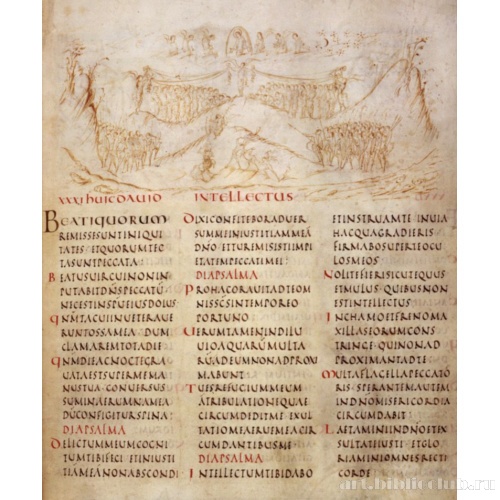 XXXI HUIC DAUID INTELLECTUS
BEATIQUORUM
REMISSESUNTINIQUI
TATES ETQUORUMTEC
TASUNTPECCATA
BEATUSUIRCUINONIN
PUTABITDNSPECCATU
NECESTINSPUEIUSDOLUS
QNMTACUIINUETERAUE
RUNTOSSAMEA DUM
CLAMAREMTOTADIE
QNMDIEACNOCTEGRA
UATAESTSUPERMEMA
NUSTUA CONUERSUS
SUMINAERUMNAMEA
DUCONFIGITURSPINA
DIAPSALMA
DELICTUMMEUMCOGNI
TUMTIBIFECI ETINIUSTI
TIAMEANONABSCONDI
DIXICONFITEBORADUER
SUMMEINIUSTITIAMMEA
DNO ETTUREMISISTIIMPI
ETATEMPECCATIMEI
DIAPSALMA
PROHACORAUITADTEOM
NISSCSINTEMPOREO
PORTUNO
UERUMTAMENINDILU
UIOAQUARUMMULTA
RUADEUMNONADPROXI
MABUNT
TUESREFUGIUMMEUM
ATRIBULATIONEQUAE
CIRCUMDEDITME EXUL
TATIOMEAERUEMEACIR
CUMDANTIBUSME
DIAPSALMA
INTELLECTUMTIBIDABO
ETINSTRUAMTE INUIA
HACQUAGRADIERIS
FIRMABOSUPERTEOCU
LOSMEOS
NOLITEFIERISICUTEQUUS
ETMULUS QUIBUSNON
ESTINTELLECTUS
INCHAMOETFRENOMA
XILLASEORUMCONS
TRINGE QUINONAD
PROXIMANTADTE
MULTAFLAGELLAPECCATO
RIS SPERANTEMAUTEM
INDNOMISERICORDIA
CIRCUMDABIT
LAETAMINIINDNOETEX
SULTATEIUSTI ETGLO
RIAMINIOMNESRECTI
CORDE
art.biblioclub.ru